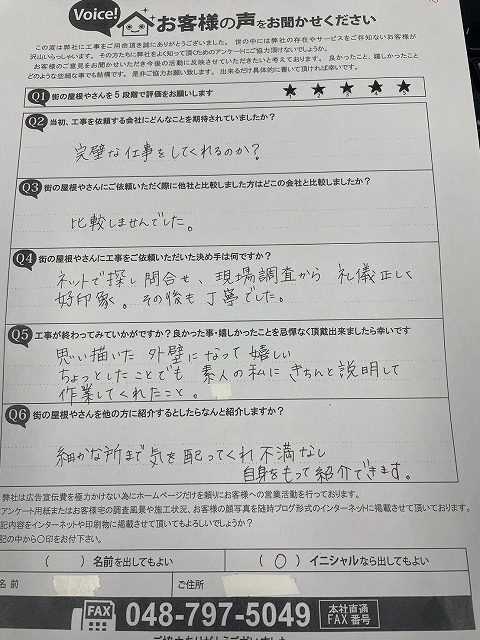 Voice! お客様の声をお聞かせください
この度は弊社に工事をご用命頂き誠にありがとうございました。世の中には弊社の存在やサービスをご存知ないお客様が
沢山いらっしゃいます。その方たちに弊社をよく知って頂くためのアンケートにご協力頂けないでしょうか。
お客様のご意見をお聞かせいただき今後の活動に反映させていただきたいと考えております。良かったこと、嬉しかったこと
どのような些細な事でも結構です。是非ご協力お願い致します。出来るだけ具体的に書いて頂ければ幸いです。
Q1 街の屋根やさんを5段階で評価をお願いします ★ ★ ★ ★ ★
Q2 当初、工事を依頼する会社にどんなことを期待されていましたか?
完璧な仕事をしてくれるのか?
Q3 街の屋根やさんにご依頼いただく際に他社と比較しました方はどこの会社と比較しましたか?
比較しませんでした。
Q4 街の屋根やさんに工事をご依頼いただいた決め手は何ですか?
ネットで探し問合せ、現場調査から 礼儀正しく
好印象。その後も丁寧でした。
Q5 工事が終わってみていかがですか?良かった事・嬉しかったことを忌憚なく頂戴出来ましたら幸いです
思い描いた外壁になって嬉しい
ちょっとしたことでも 素人の私にきちんと説明して
作業してくれたこと。
Q6 街の屋根やさんを他の方に紹介するとしたらなんと紹介しますか?
細かな所まで気を配ってくれ不満なし
自身をもって紹介できます。
弊社は広告宣伝費を極力かけない為にホームページだけを頼りにお客様への営業活動を行っております。
アンケート用紙またはお客様宅の調査風景や施工状況、お客様の顔写真を随時ブログ形式のインターネットに掲載させて頂いております。
記内容をインターネットや印刷物に掲載させて頂いてもよろしいでしょうか?
記の中から〇印をお付下さい。
( ) 名前を出してもよい ( ○ ) イニシャルなら出してもよい
名前 ご住所
FAX 048-797-5049 本社直通 FAX番号